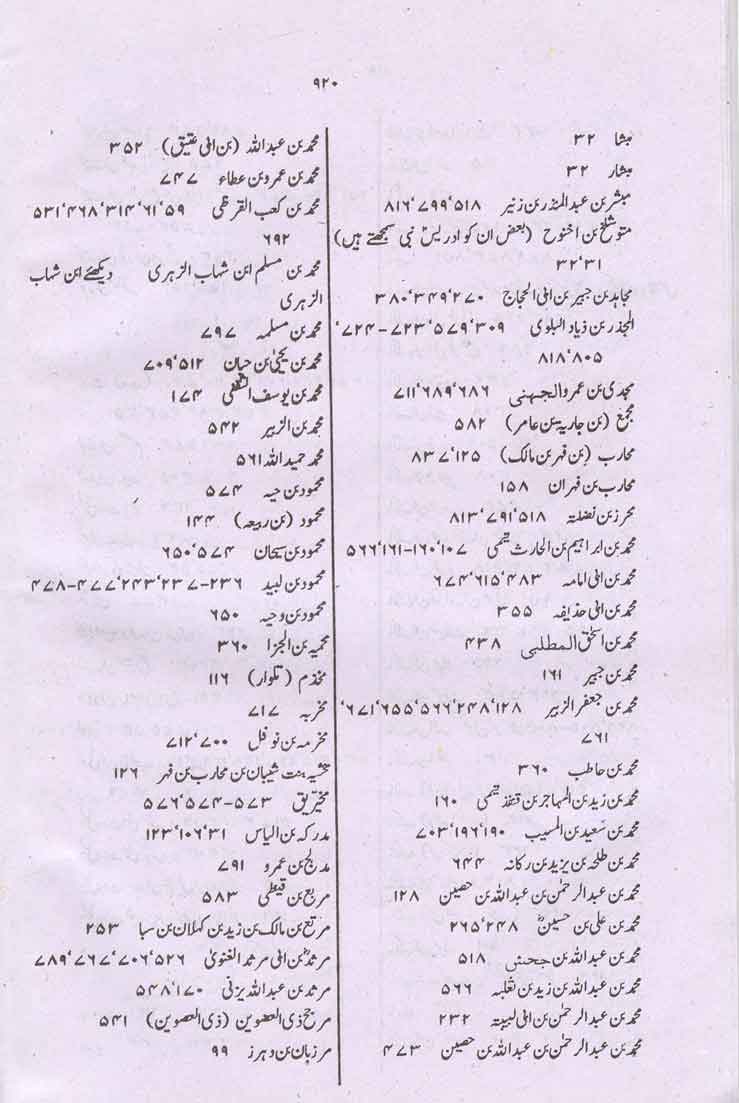 ۹۲۰
مشا ۳۲
مشار ۳۲
مبشر بن عبد المنذر بن زنیر ۵۱۸‘۷۹۹‘۸۱۶
متوشلخ بن اخنوخ (بعض ان کو ادریسؑ نبی سمجھتے ہیں)
۳۱‘۳۲
مجاہد بن جبیر بن ابی الحجاج ۲۷۰‘۳۴۹‘۳۸۰
المجذر بن زیاد البلوی ۳۰۹‘۵۷۹‘۷۲۳-۷۲۴‘
۸۰۵‘۸۱۸
مجدی بن عمرو الجہنی ۶۸۶‘۶۸۹‘۷۱۱
مجمع (بن جاریہ بن عامر) ۵۸۲
محارب (بن فہر بن مالک) ۱۲۵‘۸۳۷
محارب بن فہران ۱۵۸
محرز بن نضلتہ ۵۱۸‘۷۹۱‘۸۱۳
محمد بن ابراہیم بن الحارث تیمی ۱۰۷‘۱۶۰-۱۶۱‘۵۶۶
محمد بن ابی امامہ ۴۸۳‘۶۱۵‘۶۷۴
محمد بن ابی حذیفہ ۳۵۵
محمد بن اسحٰق المطلبی ۴۳۸
محمد بن جبیر ۱۶۱
محمد بن جعفر الزبیر ۱۲۸‘۲۴۸‘۵۶۶‘۶۵۵‘۶۷۱‘
۷۶۱
محمد بن حاطب ۳۶۰
محمد بن زید بن المہاجر بن قنفذ تیمی ۱۶۰
محمد بن سعید بن المسیب ۱۹۰‘۱۹۶‘۷۰۳
محمد بن طلحہ بن یزید بن رکانہ ۶۴۴
محمد بن عبد الرحمٰن بن عبد اللہ بن حصین ۱۲۸
محمد بن علی بن حسینؓ ۲۴۸‘۲۶۵
محمد بن عبد اللہ بن جحش ۵۱۸
محمد بن عبد اللہ بن زید بن ثعلبہ ۵۶۶
محمد بن عبد الرحمٰن بن ابی لبیبتہ ۲۳۲
محمد بن عبد الرحمٰن بن عبد اللہ بن حصین ۴۷۳
محمد بن عبد اللہ (بن ابی عتیق) ۳۵۲
محمد بن عمرو بن عطاء ۷۴۷
محمد بن کعب القرظی ۵۹‘۶۱‘۳۱۴‘۴۶۸‘۵۳۱
۶۹۲
محمد بن مسلم ابن شہاب الزہری دیکھئے ابن شہاب
الزہری
محمد بن مسلمہ ۷۹۷
محمد بن یحیٰی بن حبان ۵۱۲‘۷۰۹
محمد بن یوسف الثقفی ۱۷۴
محمد بن الزبیر ۵۴۲
محمد حمید اللہ ۵۶۱
محمود بن حیہ ۵۷۴
محمود (بن ربیعہ) ۱۴۴
محمود بن سیحان ۵۷۴‘۶۵۰
محمود بن لبید ۲۳۶-۲۳۷‘۲۴۳‘۴۷۷-۴۷۸
محمود بن وحیہ ۶۵۰
محمیہ بن الجزا ۳۶۰
مخذم (تلوار) ۱۱۶
مخربہ ۷۱۷
مخرمہ بن نوفل ۷۰۰‘۷۱۲
مخشیہ بنت شیبان بن محارب بن فہر ۱۲۶
مخیریق ۵۷۳-۵۷۴‘۵۷۶
مدرکہ بن الیاس ۳۱‘۱۰۶‘۱۲۳
مدلج بن عمرو ۷۹۱
مربع بن قیظی ۵۸۳
مرتع بن مالک بن زید بن کہلان بن سبا ۲۵۳
مرثدؓ بن ابی مرثد الغنوی ۵۲۶‘۷۰۶‘۷۶۷‘۷۸۹
مرثد بن عبد اللہ یزنی ۱۷۰‘۵۴۸
مرجح ذی العضوین (ذی العصوین) ۵۴۱
مرزبان بن وہرز ۹۹